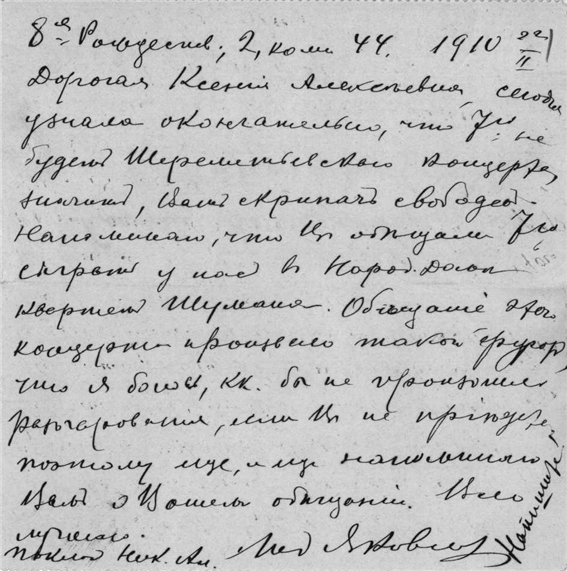 8я Рождеств., 2, комн 44. 1910 22/II
Дорогая Ксенія Алексѣевна, сегодня
узнала окончательно, что 7го не
будетъ Шереметьевскаго концерта,
значитъ, Вашъ скрипачъ свободенъ.
Напоминаю, что Вы обѣщали 7го
сыграть у насъ в Народ. домѣ
квартетъ Шумана. Обѣщаніе этого
концерта произвело такой фурор,
что я боюсь, кк. бы не произошло
разочарованія, если Вы не пріѣдете,
поэтому еще, и еще напоминаю
Вамъ о Вашемъ обѣщаніи. Всего
лучшаго.
Поклон Ник. Ал.
Яковлева
Напишите!